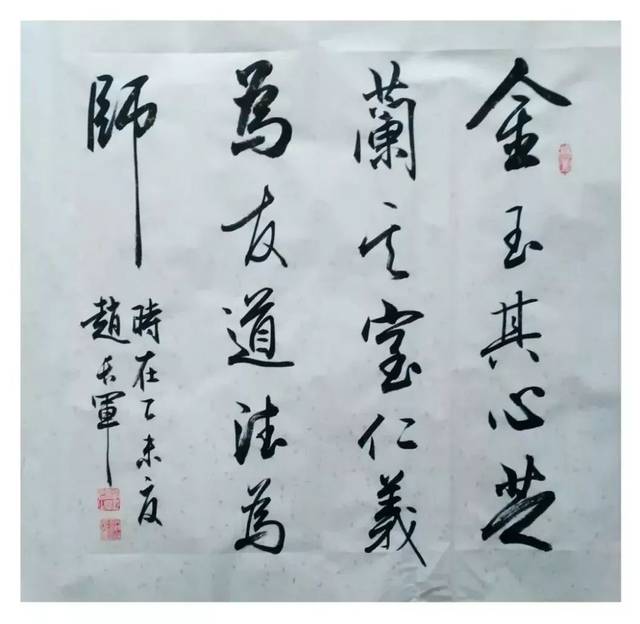 金玉其心芝
蘭其室仁義
為友道德為
師
時在乙未夏
趙軍